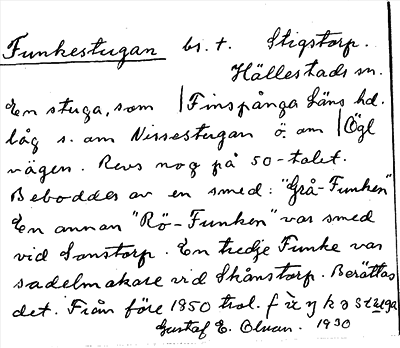 Funkestugan bs. t. Stigstorp.
Hällestads sn.
En stuga, som | Finspånga läns hd.
låg s. om Nissestugan ö. om | Ögl
vägen. Revs nog på 50-talet.
Beboddes av en smed: "Grå-Funken"
En annan "Rö-Funken" var smed
vid Sonstorp. En tredje Funke var
sadelmakare vid Skånstorp. Berättas
det. Från före 1850 trol.
Gustaf E. Olsson. 1930